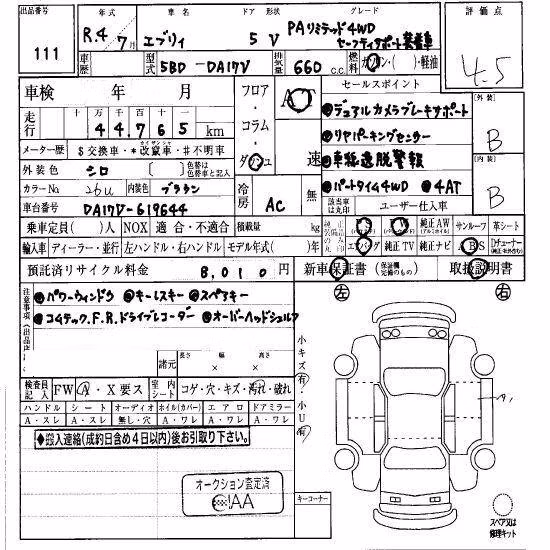 出品番号 年式 車名 ドア 形状 グレード 評価点
111 R.4年7月 エブリィ 5 V PAリミテッド4WD セーフティサポート装着車 4.5
車歴 型式 5BD-DA17V 排気量 660 c.c. 燃料 ガソリン・( )・軽油
車検 年 月 フロア・コラム・ダッシュ AT 速 セールスポイント
走行 十 万 千 百 十
4 4 7 6 5 km
●デュアルカメラブレーキサポート 外装 B
メーター歴 $交換車・*改竄車・#不明車 ●リヤパーキングセンサー
外装色 シロ ( ) 色替は色替車と記入 ●車線逸脱警報 内装 B
カラーNo 26U 内装色 ブラウン 冷房 AC 無 ●パートタイム4WD ●4AT
車台番号 DA17V-619644 該当車は丸印 ユーザー仕入車
乗車定員( )人 NOX 適合・不適合 積載量 kg 純正AW サンルーフ 革シート
輸入車 ディーラー・並行 左ハンドル・右ハンドル モデル年式( )年 エアバッグ 純正TV 純正ナビ ABS
預託済リサイクル料金 8,010円 新車保証書 取扱説明書
注意事項
●パワーウィンドウ ●キーレスキー ●スペアキー 左 右
●コムテックF.R.ドライブレコーダー ●オーバーヘッドシェルフ
諸元 長さ × 幅 × 高さ
小キズ有・小U有
検査員記入 FW A・X要ス 室内シート コゲ・穴・キズ・汚れ・破れ
ハンドル シート オーディオ ホイル(カバー) エアロ ドアミラー
A・スレ A・スレ 無し・穴 A・ワレ A・ワレ A・ワレ
◆搬入連絡(成約日含め4日以内)後お引取り下さい。
オークション査定済
AA
キーコーナー
スペア又は
修理キット